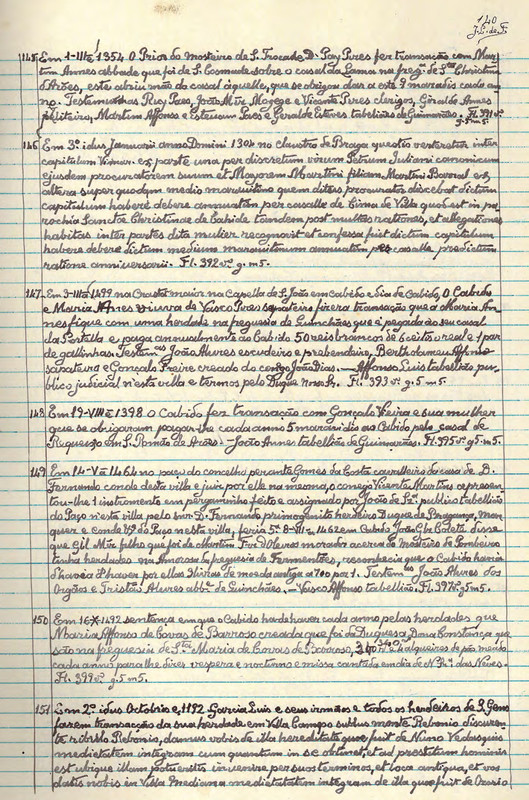 140
J.L. de F.
145 Em 1-III-1354 O Prior do mosteiro de S. Torcade D. Pay Pires fez transação com Mar-
tim Annes abbade que foi de S. Cosmade sobre o casal da Lama na freg. de S.ta Christina
d'Arões, este abriu mão do casal áquelle, que se obrigou dar a este 9 maradis cada an-
no. Testemunhas Ruy Paes, João Miz, Mogege e Vicente Pires clerigos, Giral de Annes
peliteiro, Martim Affonso e Estevam Paes e Geralde Esteves tabelliães de Guimarães. Fl. 391 vº
g. 5 m 5.
146 Em 3.º idus Januarii anno Domini 1304 no claustro de Braga questio verteretur inter
capitulum Vimar. ex parte una per discretum virum Petrum Juliani canonicum
ejusdem procuratorem suum et Mayorem Martini filiam Martini ex
altera super quodam medio marauitino quem dictus procurator dicebat dictum
capitulum habere debere annuatim per casalle de Cima de Villa quod est in pa-
rochia Sancte Christinae de Cahide tandem post multas rationes, et allegationes
habitas inter partes dita mulier recognovit et confessa fuit dictum capitulum
habere debere dictum medium marauitinum annuatim per casalle predictum
ratione anniversarii. Fl. 392 vº g. m 5.
147 Em 3-III-1499 na Crasta maior na Capella de S. João em cabido e dia de Cabido, O Cabido
e Maria Anes viuva de Vasco Pires sapateiro fizera transação que a Maria An-
nes fique com uma herdade na freguesia de Guinchães que é pegada ao seu casal
da Portella e paga annualmente ao Cabido 50 reis brancos de 6 ceitis o real e 1 par
de gallinhas. Testem.as João Alvres escudeiro e prebendeiro, Bertholameu Affonso
sapateiro e Gonçalo Freire creado do conego João Dias. - Affonso Luis tabellião pu-
blico judicial n'esta villa e termos pelo Duque Nosso Sr. Fl. 393 vº g. 5 m 5.
148 Em 19-VIII-1398 O Cabido fez transação com Gonçalo Vieira e sua mulher
que se obrigaram pagar-lhe cada anno 5 maravidis ao Cabido pelo casal de
Requeixo em S. Romão de Arões. - João Annes tabellião de Guimarães. Fl. 395 vº g. 5 m 5.
149 Em 14-V-1464 no paço do concelho perante Gomes da Costa cavalleiro da casa de D.
Fernando conde desta villa e juiz por elle na mesma, o conego Vicente Martins represen-
tou-lhe 1 instrumento em pergaminho feito e assignado por João de publico tabellião
do Paço nesta villa pelo snr. D. Fernando primogenito herdeiro Duque de Bragança, mar-
quez e conde do Paço nesta villa, feria 5.ª 8-VII-1462 em Cabido João Glz Calete disse
que Gil Miz filho que foi de Martim Fiz d'Oleiros morador acerca do Mosteiro de Pombeiro
tinha herdades na Amorosa freguesia de Fermentões, reconhecia que o Cabido havia
d'haver por ellas 3 livras de moeda antiga a 700 por 1. Testem.as João Alvres dos
Orgãos e Tristão Alvres abb.e de Guinchães. - Vasco Affonso tabellião. Fl. 397 vº g. 5 m 5.
150 Em 16-X-1492 sentença em que o Cabido hade haver cada anno pelas herdades que
Maria Affonso de Covas de Barroso creada que foi da Duquesa Dona Constança que
são na freguesia de S.ta Maria de Covas de Barroso, e 4 alqueires de pão meado
cada anno para lhe dizer vespera e nocturno e missa cantada em dia de N. Sr.a das Neves.
Fl. 399 vº g. 5 m 5.
151 Em 2.º idus Octobris e 1192 Garcia Luis e seus irmãos e todos os herdeiros de S. Gens
fazem transação da sua herdade em Villa Campo subtus monte Rebonio discurren-
te rivulo Rebonio, damus vobis de illa hereditate que fuit de Nuno Vedasquis
medietatem integram cum quantum in se obtinet, et ad prestitum hominis
est ubique illam potueritis invenire per suos terminos, et loca antiqua, et vos
datis nobis in Villa Mediana medietatem integram de illa que fuit de Osorio